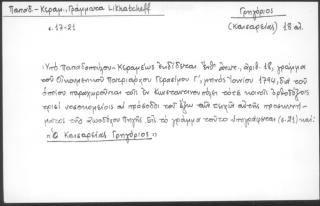 Παπαδ.-Κεραμ., Γράμματα Likhatcheff
Γρηγόριος
(Καισαρείας) 18 αἰ.
σ. 17-21
Ὑπὸ Παπαδοπούλου-Κεραμέως ἐκδίδεται ἀριθ. 18, γράμμα
τοῦ Οἰκουμενικοῦ Πατριάρχου Γερασίμου Γ΄, μηνὸς Ἰουνίου 1794, διὰ τοῦ
ὁποίου παραχωροῦνται Κωνσταντινουπόλει
τρισὶ νοσοκομείοις αἱ πρόσοδοι τοῦ ἔξω τῶν τειχῶν
τῆς Ζωοδόχου Πηγῆς. Εἰς τὸ γράμμα τοῦτο ὑπογράφεται (σ. 21) καί:
"Ὁ Καισαρείας Γρηγόριος"